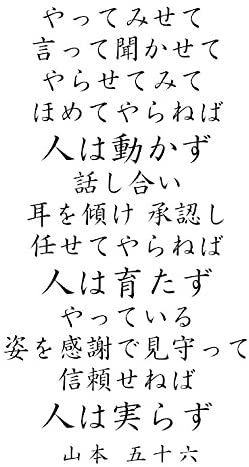 やってみせて
言って聞かせて
やらせてみて
ほめてやらねば
人は動かず
話し合い
耳を傾け 承認し
任せてやらねば
人は育たず
やっている
姿を感謝で見守って
信頼せねば
人は実らず
山本 五十六